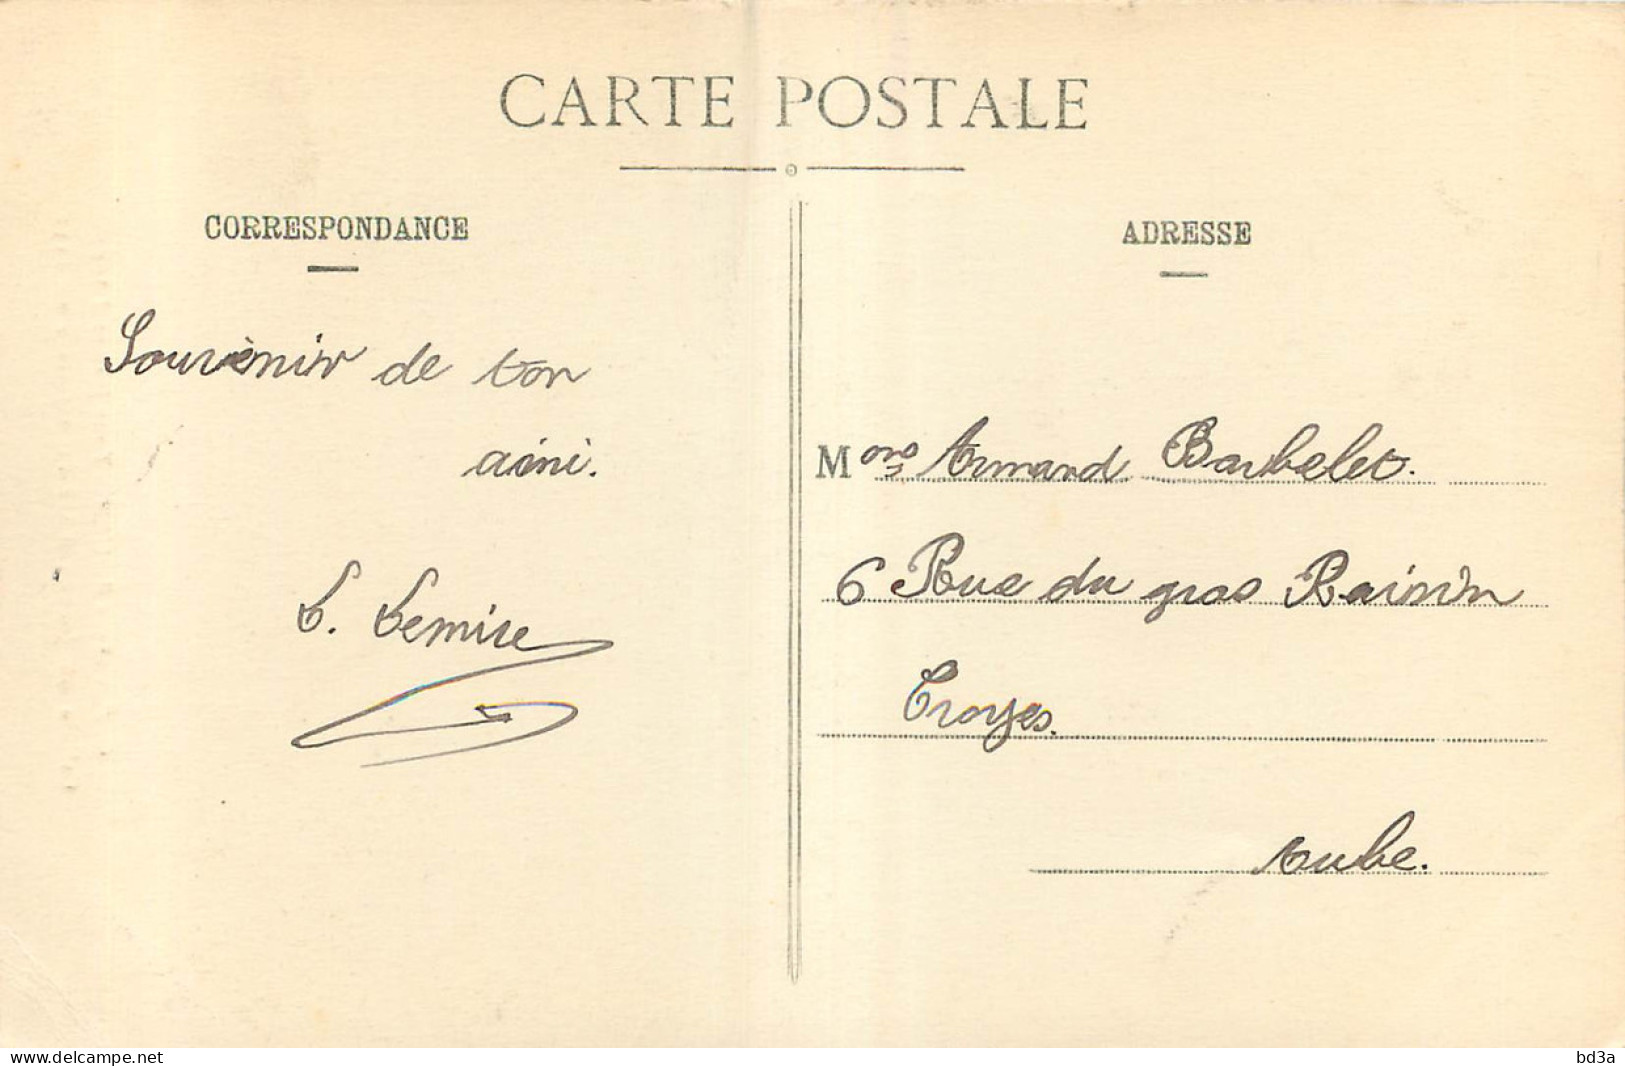 CARTE POSTALE
CORRESPONDANCE
Souvenir de ton
ami.
L. Lemire
ADRESSE
Mons Armand Barbelet.
6 Rue du gros Raisin
Troyes.
Aube.
www.delcampe.net
bd3a